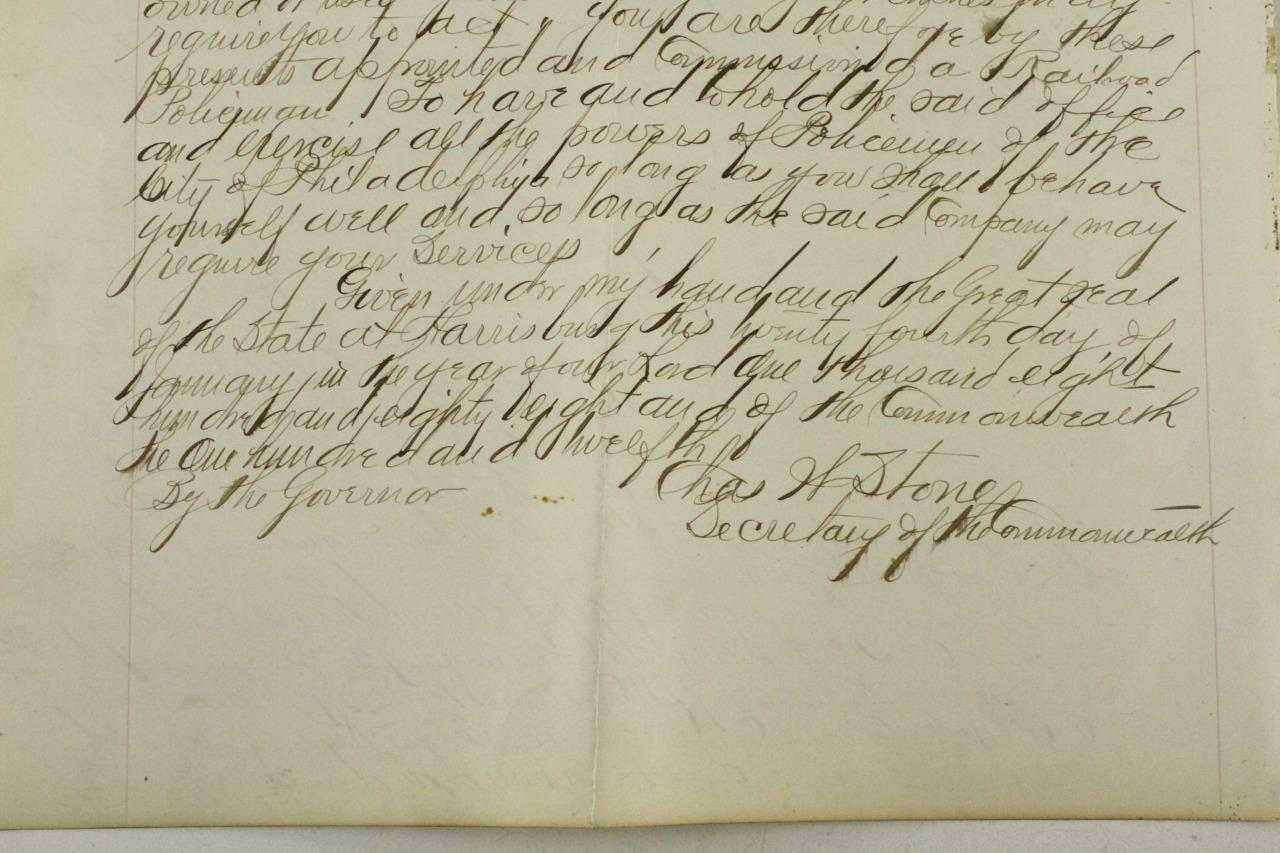 require you to act, you are therefore by these
presents appointed and Commissioned a Railroad
Policeman To have and to hold the said office
and exercise all the powers of Policemen of the
City of Philadelphia so long as you shall behave
yourself well and so long as the said Company may
require your Services
Given under my hand and the Great Seal
of the State at Harrisburg this twenty fourth day of
January in the year of our Lord One thousand eight
hundred and eighty eight and of the Commonwealth
the One hundred and twelfth
By the Governor
Chas W Stone
Secretary of the Commonwealth